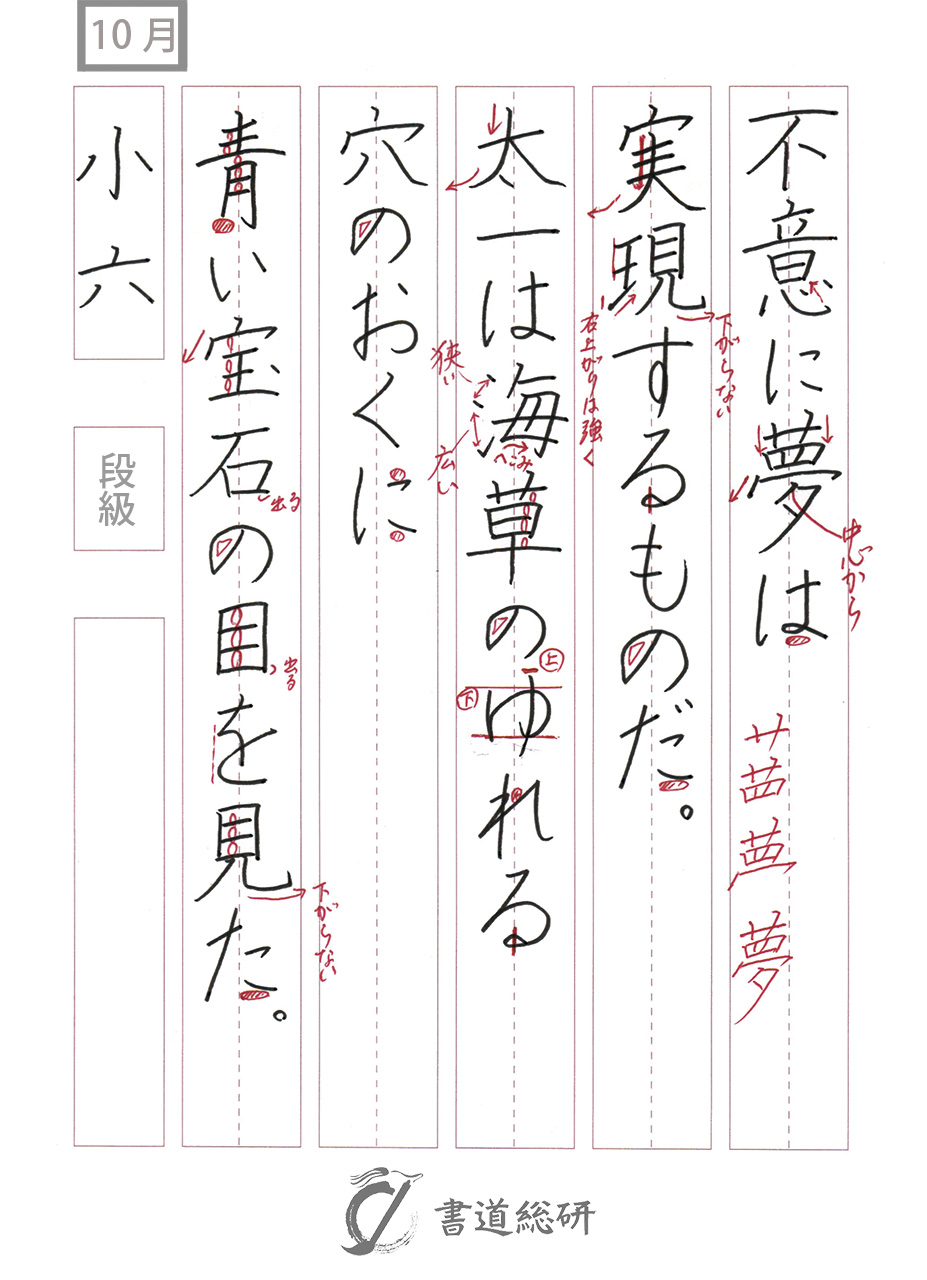 10月
不意に夢は
中心から
艹
夢
実現するものだ。
下がらない
右上がりは強く
太一は海草のゆれる
狭い
広い
へこみ
上
下
穴のおくに
青い宝石の目を見た。
出る
出る
下がらない
小六
段級
書道総研